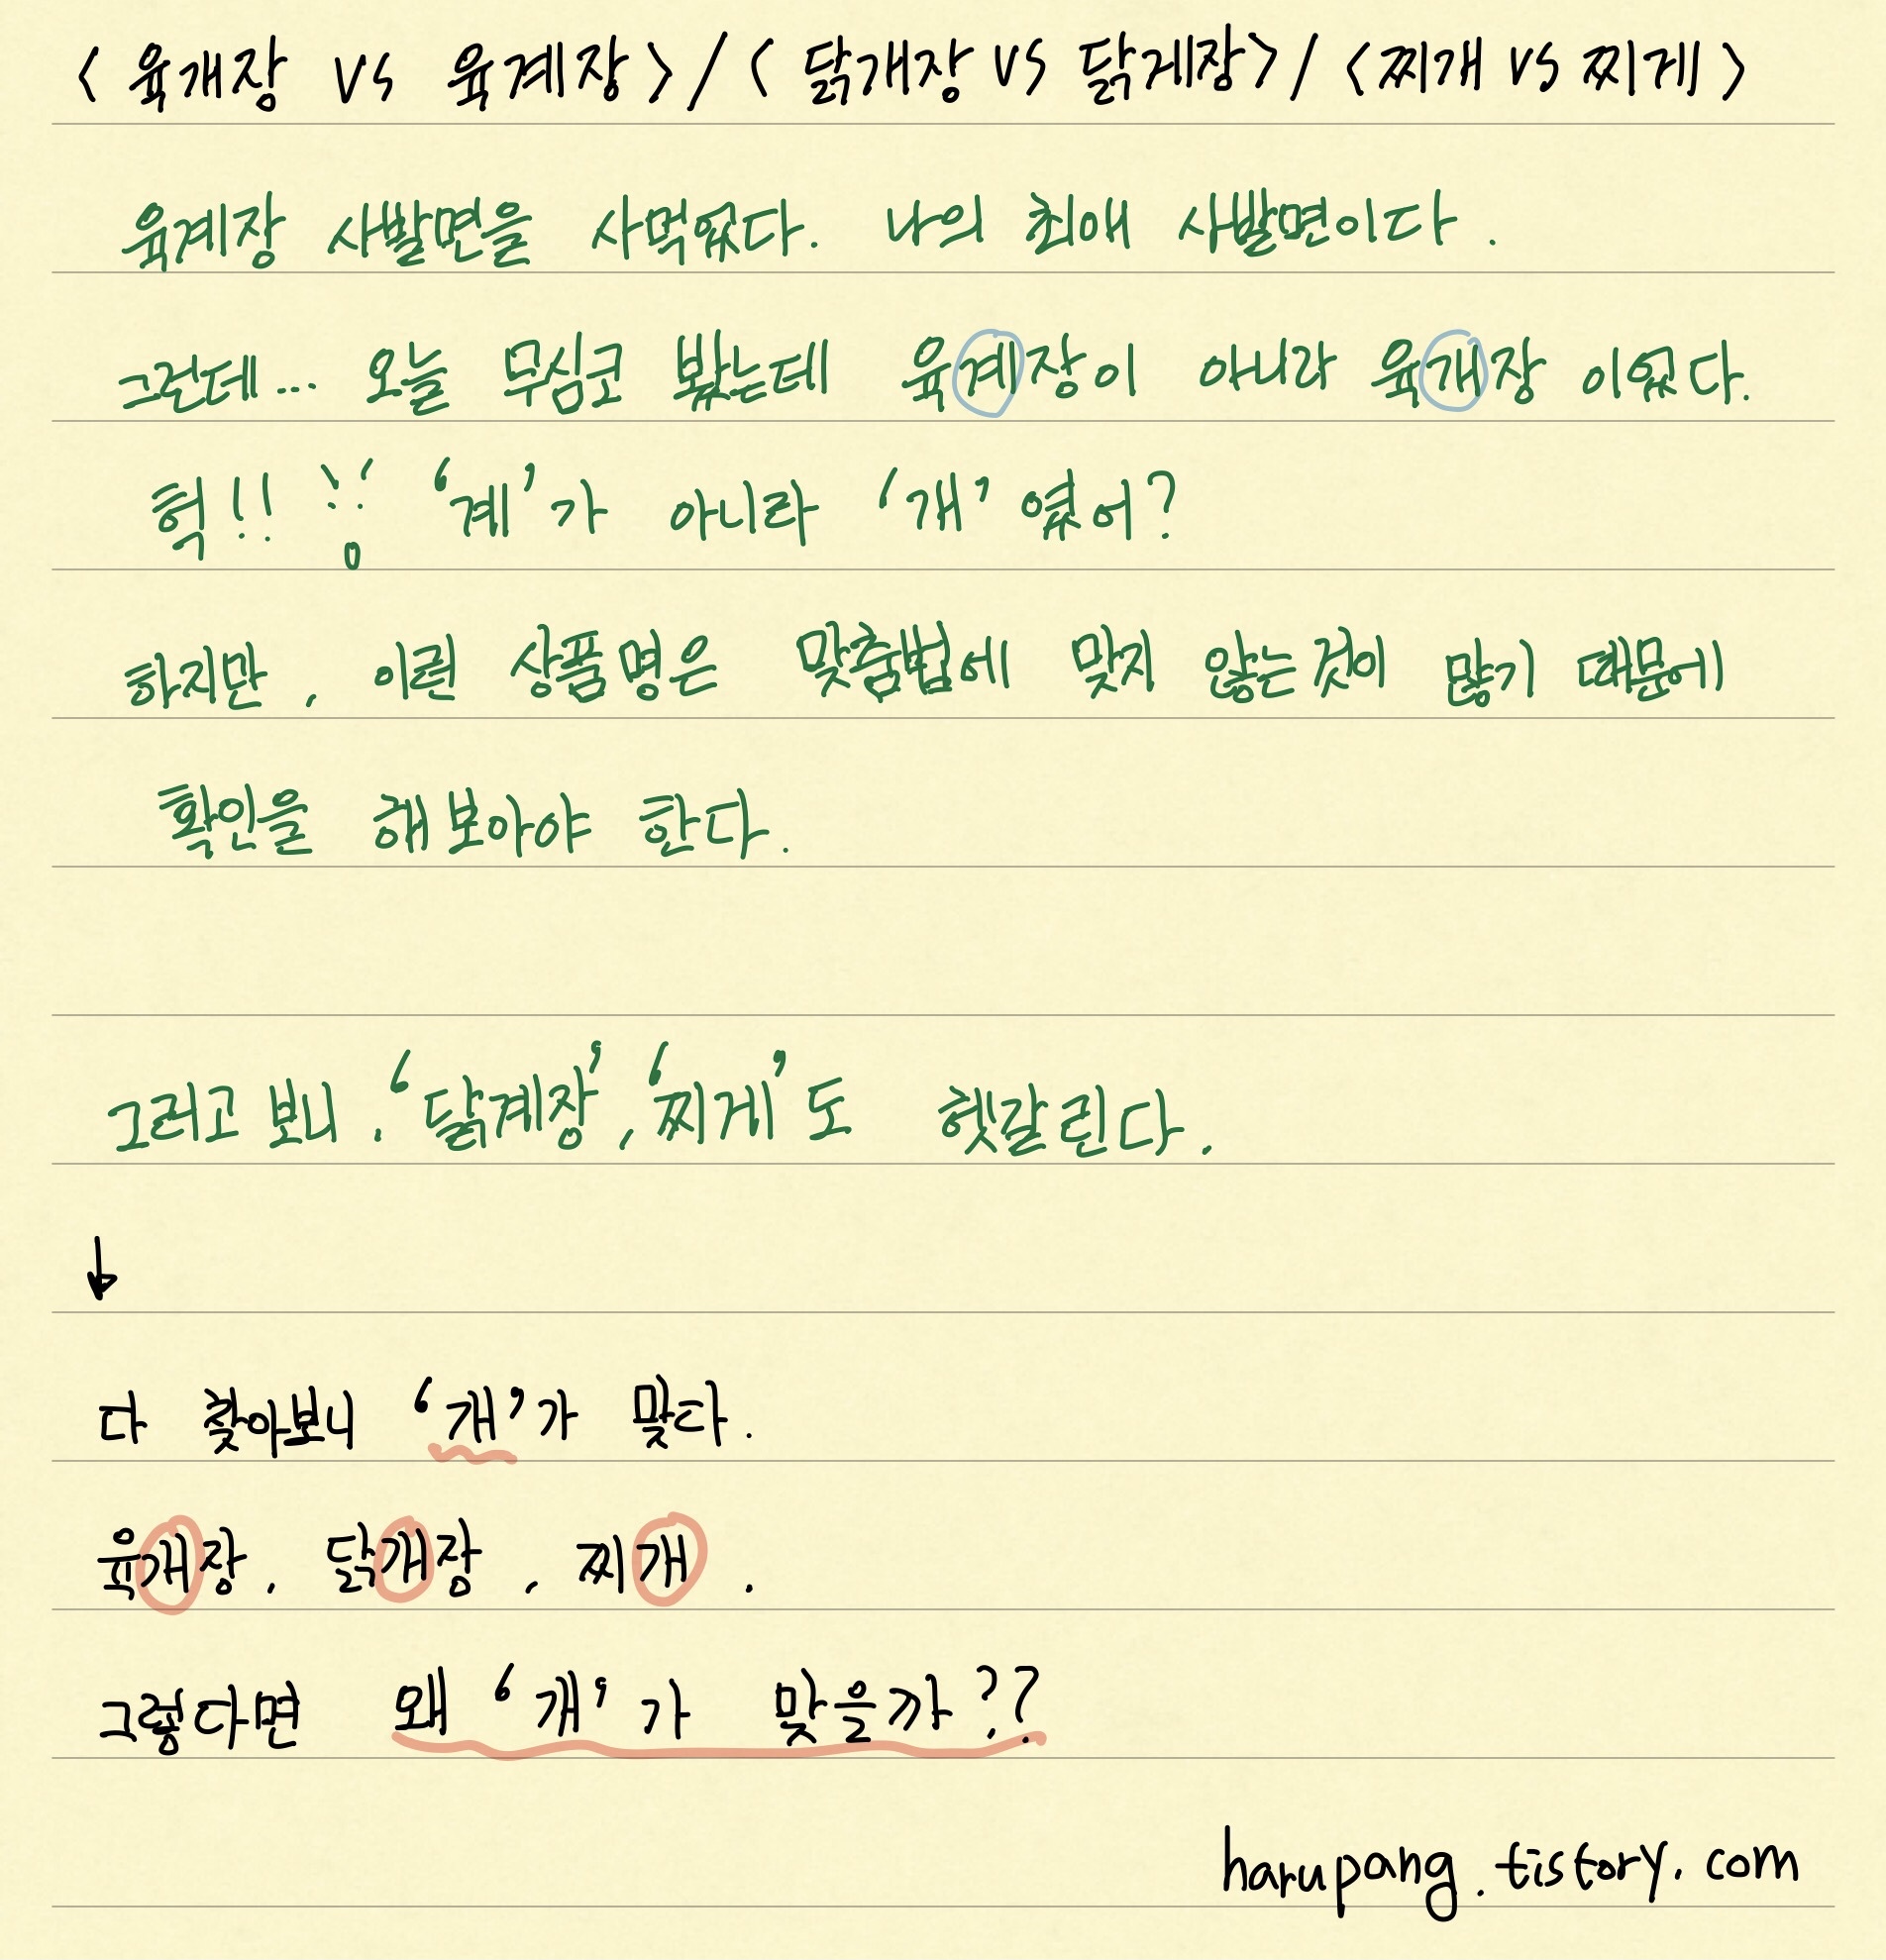 < 육개장 vs 육계장 > / < 닭개장 vs 닭게장 > / < 찌개 vs 찌게 >
육계장 사발면을 사먹었다. 나의 최애 사발면이다.
그런데... 오늘 무심코 봤는데 육계장이 아니라 육개장 이었다.
헉!! '계'가 아니라 '개' 였어?
하지만, 이런 상품명은 맞춤법에 맞지 않는것이 많기 때문에
확인을 해보아야 한다.
그러고 보니, '닭계장', '찌게'도 헷갈린다.
↓
다 찾아보니 '개'가 맞다.
육개장, 닭개장, 찌개.
그렇다면 왜 '개'가 맞을까??
harupang.tistory.com